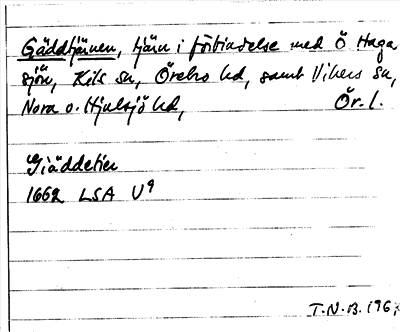 Gäddtjärnen, tjärn i förbindelse med Ö Haga
sjön, Kils sn, Örebro hd, samt Vikers sn,
Nora o. Hjulsjö hd, Ör. l.
Giäddetien
1662 LSA U9
T.N.B. 196